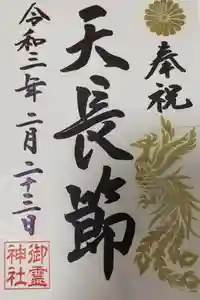 奉祝
天長節
令和三年二月二十三日
御霊神社